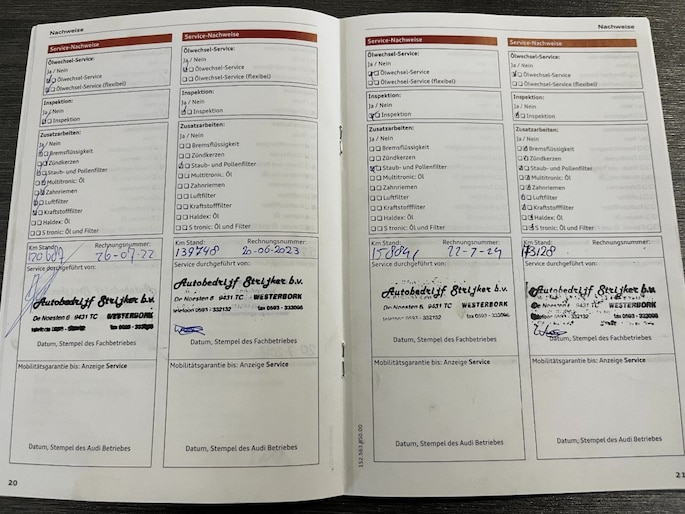 Nachweise
Service-Nachweise
Ölwechsel-Service:
Ja / Nein
Ölwechsel-Service
Ölwechsel-Service (flexibel)
Inspektion:
Ja / Nein
Inspektion
Zusatzarbeiten:
Ja / Nein
Bremsflüssigkeit
Zündkerzen
Staub- und Pollenfilter
Multitronic: Öl
Zahnriemen
Luftfilter
Kraftstofffilter
Haldex: Öl
S tronic: Öl und Filter
Km Stand: Rechnungsnummer:
26-07-22
Service durchgeführt von:
Autobedrijf Strijker b.v.
De Noesten 6 9431 TC WESTERBORK
Datum, Stempel des Fachbetriebes
Mobilitätsgarantie bis: Anzeige Service
Datum, Stempel des Audi Betriebes
20
Service-Nachweise
Ölwechsel-Service:
Ja / Nein
Ölwechsel-Service
Ölwechsel-Service (flexibel)
Inspektion:
Ja / Nein
Inspektion
Zusatzarbeiten:
Ja / Nein
Bremsflüssigkeit
Zündkerzen
Staub- und Pollenfilter
Multitronic: Öl
Zahnriemen
Luftfilter
Kraftstofffilter
Haldex: Öl
S tronic: Öl und Filter
Km Stand: Rechnungsnummer:
139748 20-06-2023
Service durchgeführt von:
Autobedrijf Strijker b.v.
De Noesten 6 9431 TC WESTERBORK
telefoon 0593 - 332132 fax 0593 - 333096
Datum, Stempel des Fachbetriebes
Mobilitätsgarantie bis: Anzeige Service
Datum, Stempel des Audi Betriebes
Nachweise
Service-Nachweise
Ölwechsel-Service:
Ja / Nein
Ölwechsel-Service
Ölwechsel-Service (flexibel)
Inspektion:
Ja / Nein
Inspektion
Zusatzarbeiten:
Ja / Nein
Bremsflüssigkeit
Zündkerzen
Staub- und Pollenfilter
Multitronic: Öl
Zahnriemen
Luftfilter
Kraftstofffilter
Haldex: Öl
S tronic: Öl und Filter
Km Stand: Rechnungsnummer:
22-7-24
Service durchgeführt von:
Autobedrijf Strijker b.v.
De Noesten 6 9431 TC WESTERBORK
telefoon 0593 - 332132 fax 0593 - 333096
Datum, Stempel des Fachbetriebes
Mobilitätsgarantie bis: Anzeige Service
Datum, Stempel des Audi Betriebes
152.563.850.00
Service-Nachweise
Ölwechsel-Service:
Ja / Nein
Ölwechsel-Service
Ölwechsel-Service (flexibel)
Inspektion:
Ja / Nein
Inspektion
Zusatzarbeiten:
Ja / Nein
Bremsflüssigkeit
Zündkerzen
Staub- und Pollenfilter
Multitronic: Öl
Zahnriemen
Luftfilter
Kraftstofffilter
Haldex: Öl
S tronic: Öl und Filter
Km Stand: Rechnungsnummer:
173128
Service durchgeführt von:
Autobedrijf Strijker b.v.
De Noesten 6 9431 TC WESTERBORK
telefoon 0593 - 332132 fax 0593 - 333096
Datum, Stempel des Fachbetriebes
Mobilitätsgarantie bis: Anzeige Service
Datum, Stempel des Audi Betriebes
21